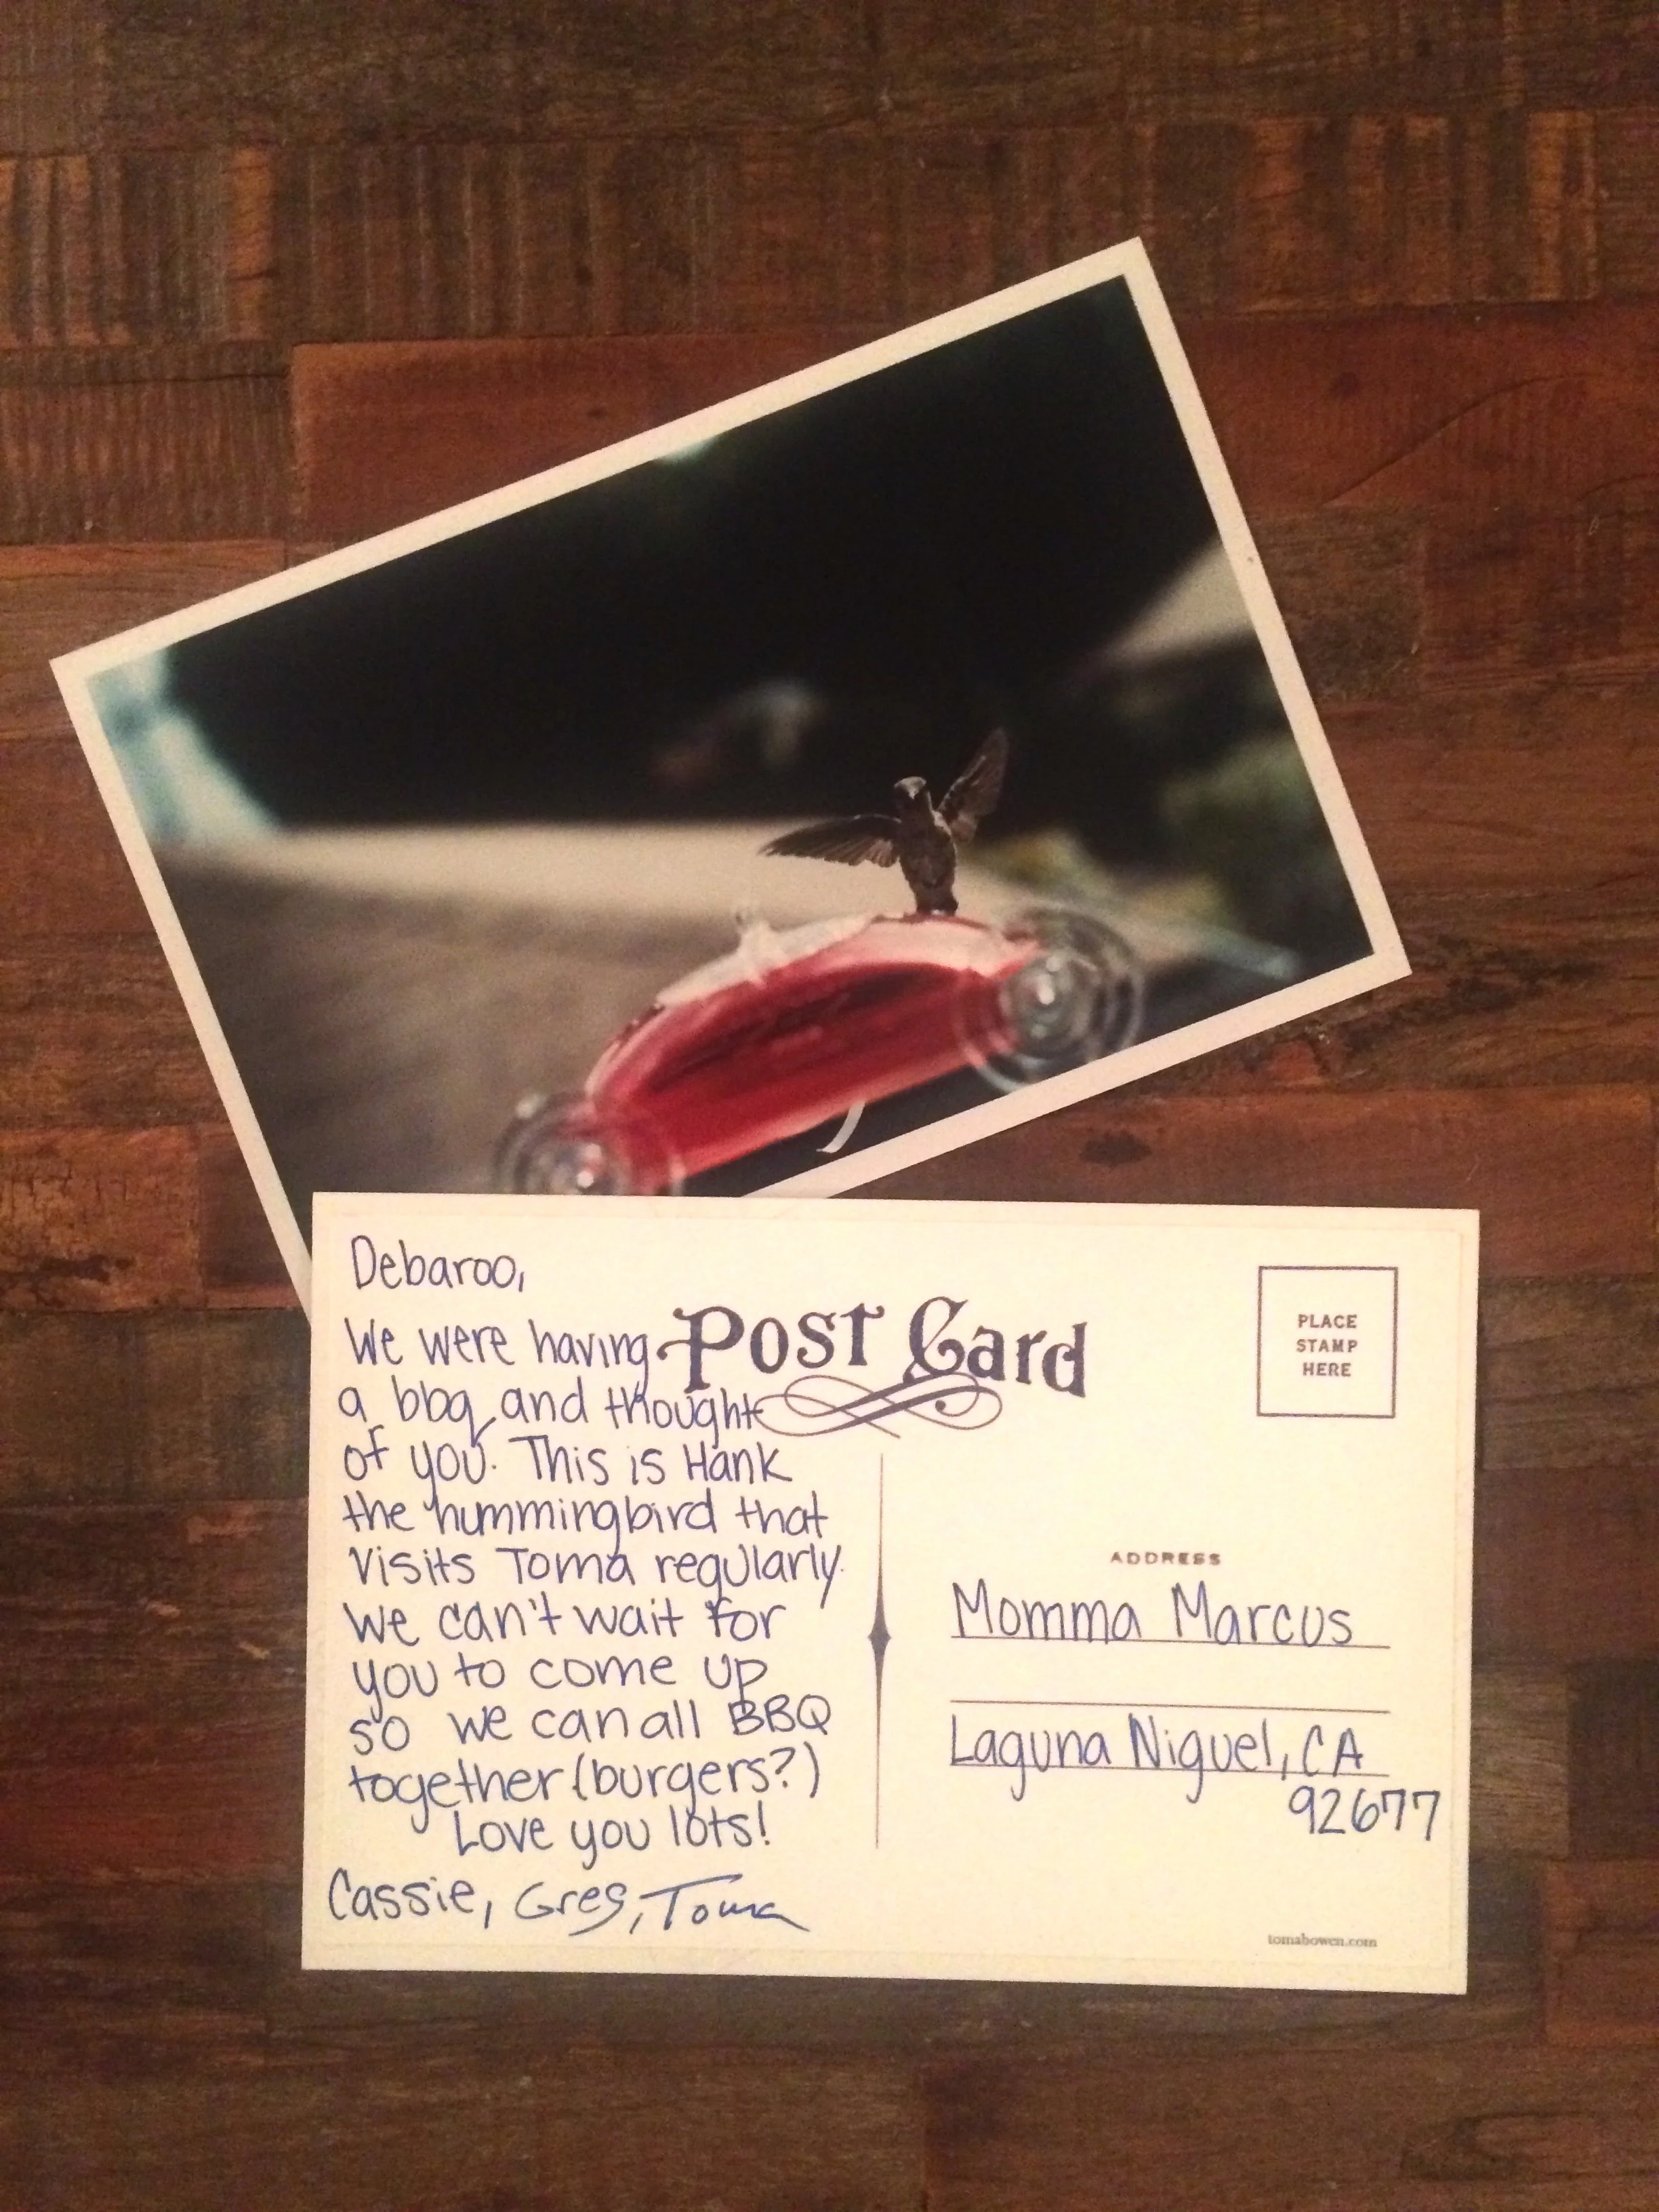 Debaroo,
We were having
a bbq and thought
of you. This is Hank
the hummingbird that
visits Toma regularly.
We can't wait for
you to come up
so we can all BBQ
together (burgers?)
Love you lots!
Cassie, Greg, Toma
Post Card
PLACE
STAMP
HERE
ADDRESS
Momma Marcus
Laguna Niguel, CA
92677
tomabowen.com